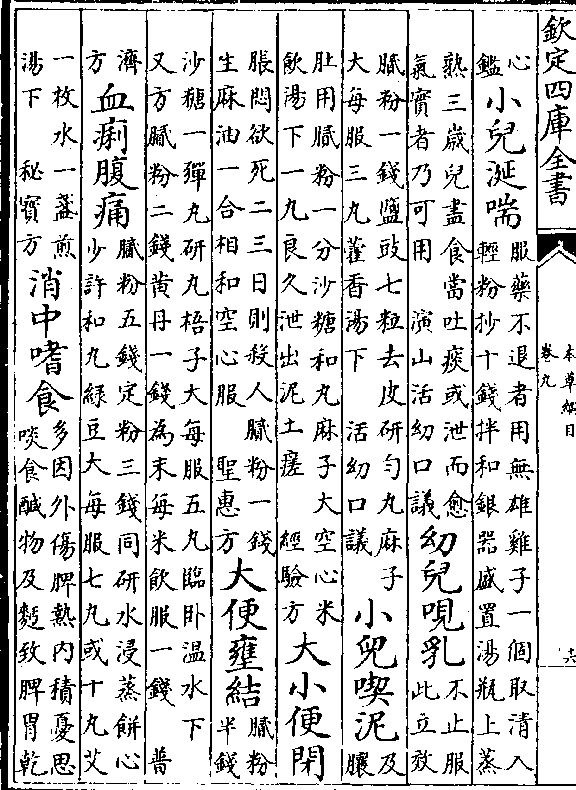 欽定四庫全書
本草綱目
卷九
十六
心鑑 小兒涎喘 服藥不退者用無雄雞子一個取清入輕粉抄十錢拌和銀器盛置湯瓶上蒸
熟三歲兒盡食當吐痰或泄而愈氣實者乃可用 演山活幼口議 幼兒哯乳 不止服此立效
膩粉一錢鹽豉七粒去皮研勻丸麻子大每服三丸藿香湯下 活幼口議 小兒喫泥 及臕
肚用膩粉一分沙糖和丸麻子大空心米飲湯下一丸良久泄出泥土瘥 經驗方 大小便閉
脹悶欲死二三日則殺人膩粉一錢生麻油一合相和空心服 聖惠方 大便壅結 膩粉半錢
沙糖一彈丸研丸梧子大每服五丸臨卧温水下又方膩粉二錢黄丹一錢為末每米飲服一錢 普
濟方 血痢腹痛 膩粉五錢定粉三錢同研水浸蒸餅心少許和丸緑豆大每服七丸或十丸艾
一枚水一盞煎湯下 秘寳方 消中嗜食 多因外傷脾熱内積憂思啖食鹹物及麪致脾胃乾